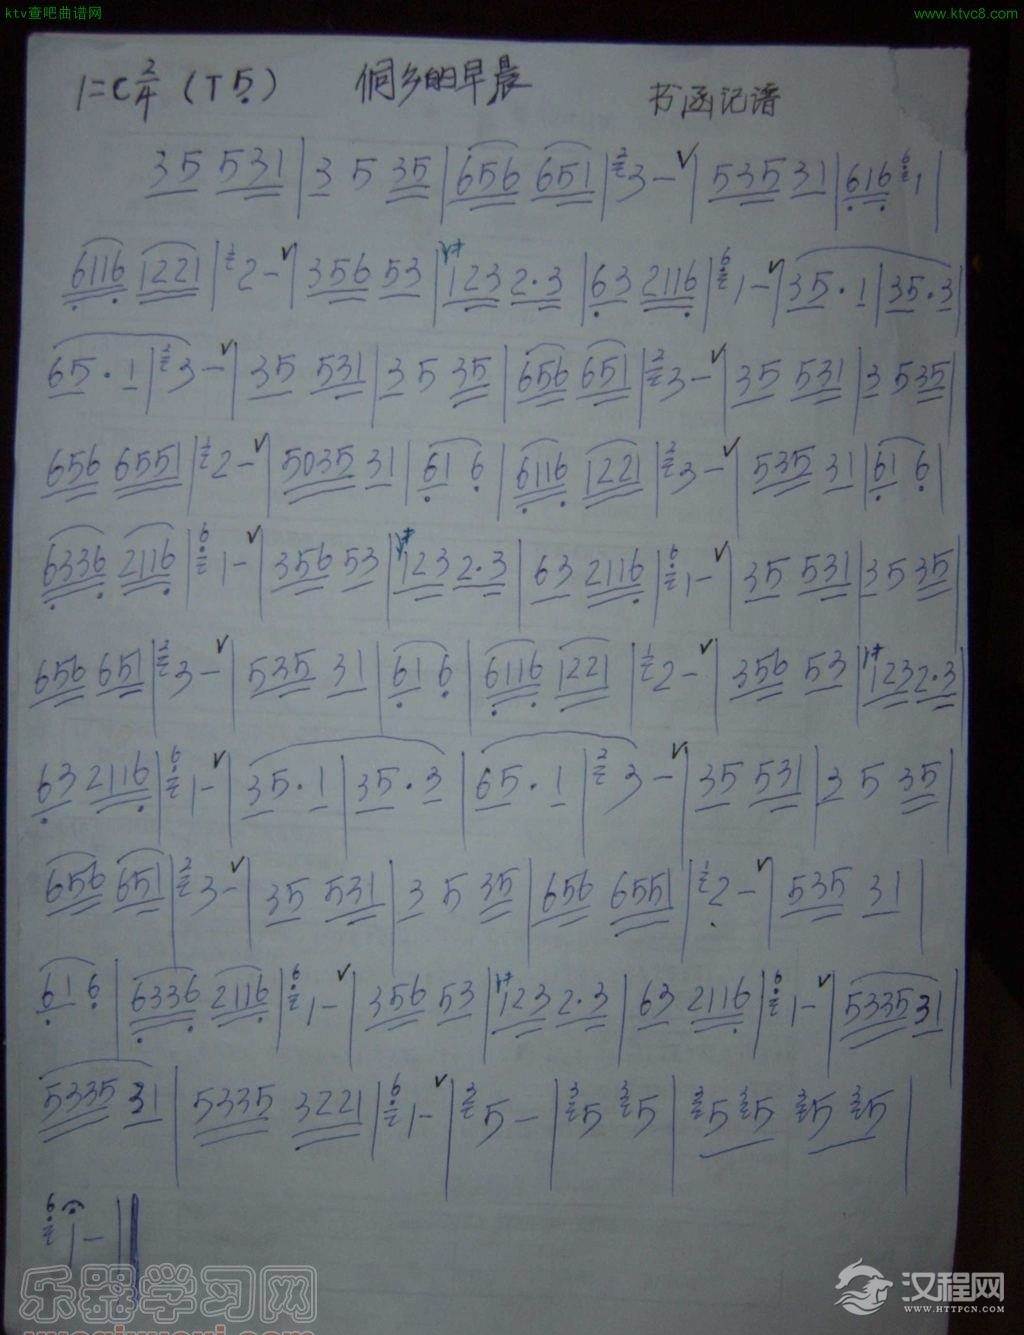 ktv查吧曲谱网 www.ktvc8.com
1=C 2/4 (T5̣) 侗乡的早晨 书函记谱
35 531 | 3 5 35 | 656 651 | 2 3 - ✓ | 535 31 | 616 6 1 |
6116 1221 | 1 2 - ✓ | 356 53 | 123 2·3 | 63 2116 | 6 1 - ✓ | 35·1 | 35·3 |
65·1 | 2 3 - ✓ | 35 531 | 3 5 35 | 656 651 | 2 3 - ✓ | 35 531 | 3 535 |
656 6551 | 1 2 - ✓ | 5035 31 | 61 6 | 6116 1221 | 2 3 - ✓ | 535 31 | 61 6 |
6336 2116 | 6 1 - ✓ | 356 53 | 123 2·3 | 63 2116 | 6 1 - ✓ | 35 531 | 3 5 35 |
656 651 | 2 3 - ✓ | 535 31 | 61 6 | 6116 1221 | 1 2 - ✓ | 356 53 | 123 2·3 |
63 2116 | 6 1 - ✓ | 35·1 | 35·3 | 65·1 | 2 3 - ✓ | 35 531 | 3 5 35 |
656 651 | 2 3 - ✓ | 35 531 | 3 5 35 | 656 6551 | 1 2 - ✓ | 535 31 |
61 6 | 6336 2116 | 6 1 - ✓ | 356 53 | 123 2·3 | 63 2116 | 6 1 - ✓ | 5335 31 |
5335 31 | 5335 3221 | 6 1 - ✓ | 3 5 - | 3 5 3 5 | 3 5 3 5 3 5 3 5 |
6 1 - ||
乐器学习网
汉程网
WWW.HTTPCN.COM